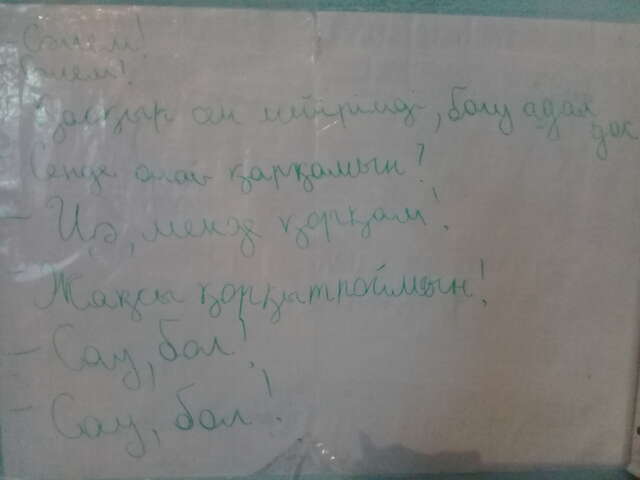 Сәлем!
Сәлем!
Қасқыр сен мейірімді, болу адал
дос
Сенде алай қарқамын?
- Иә, менде қорқам!
Жақсы қорқытпаймын!
- Сау, бол!
- Сау, бол!